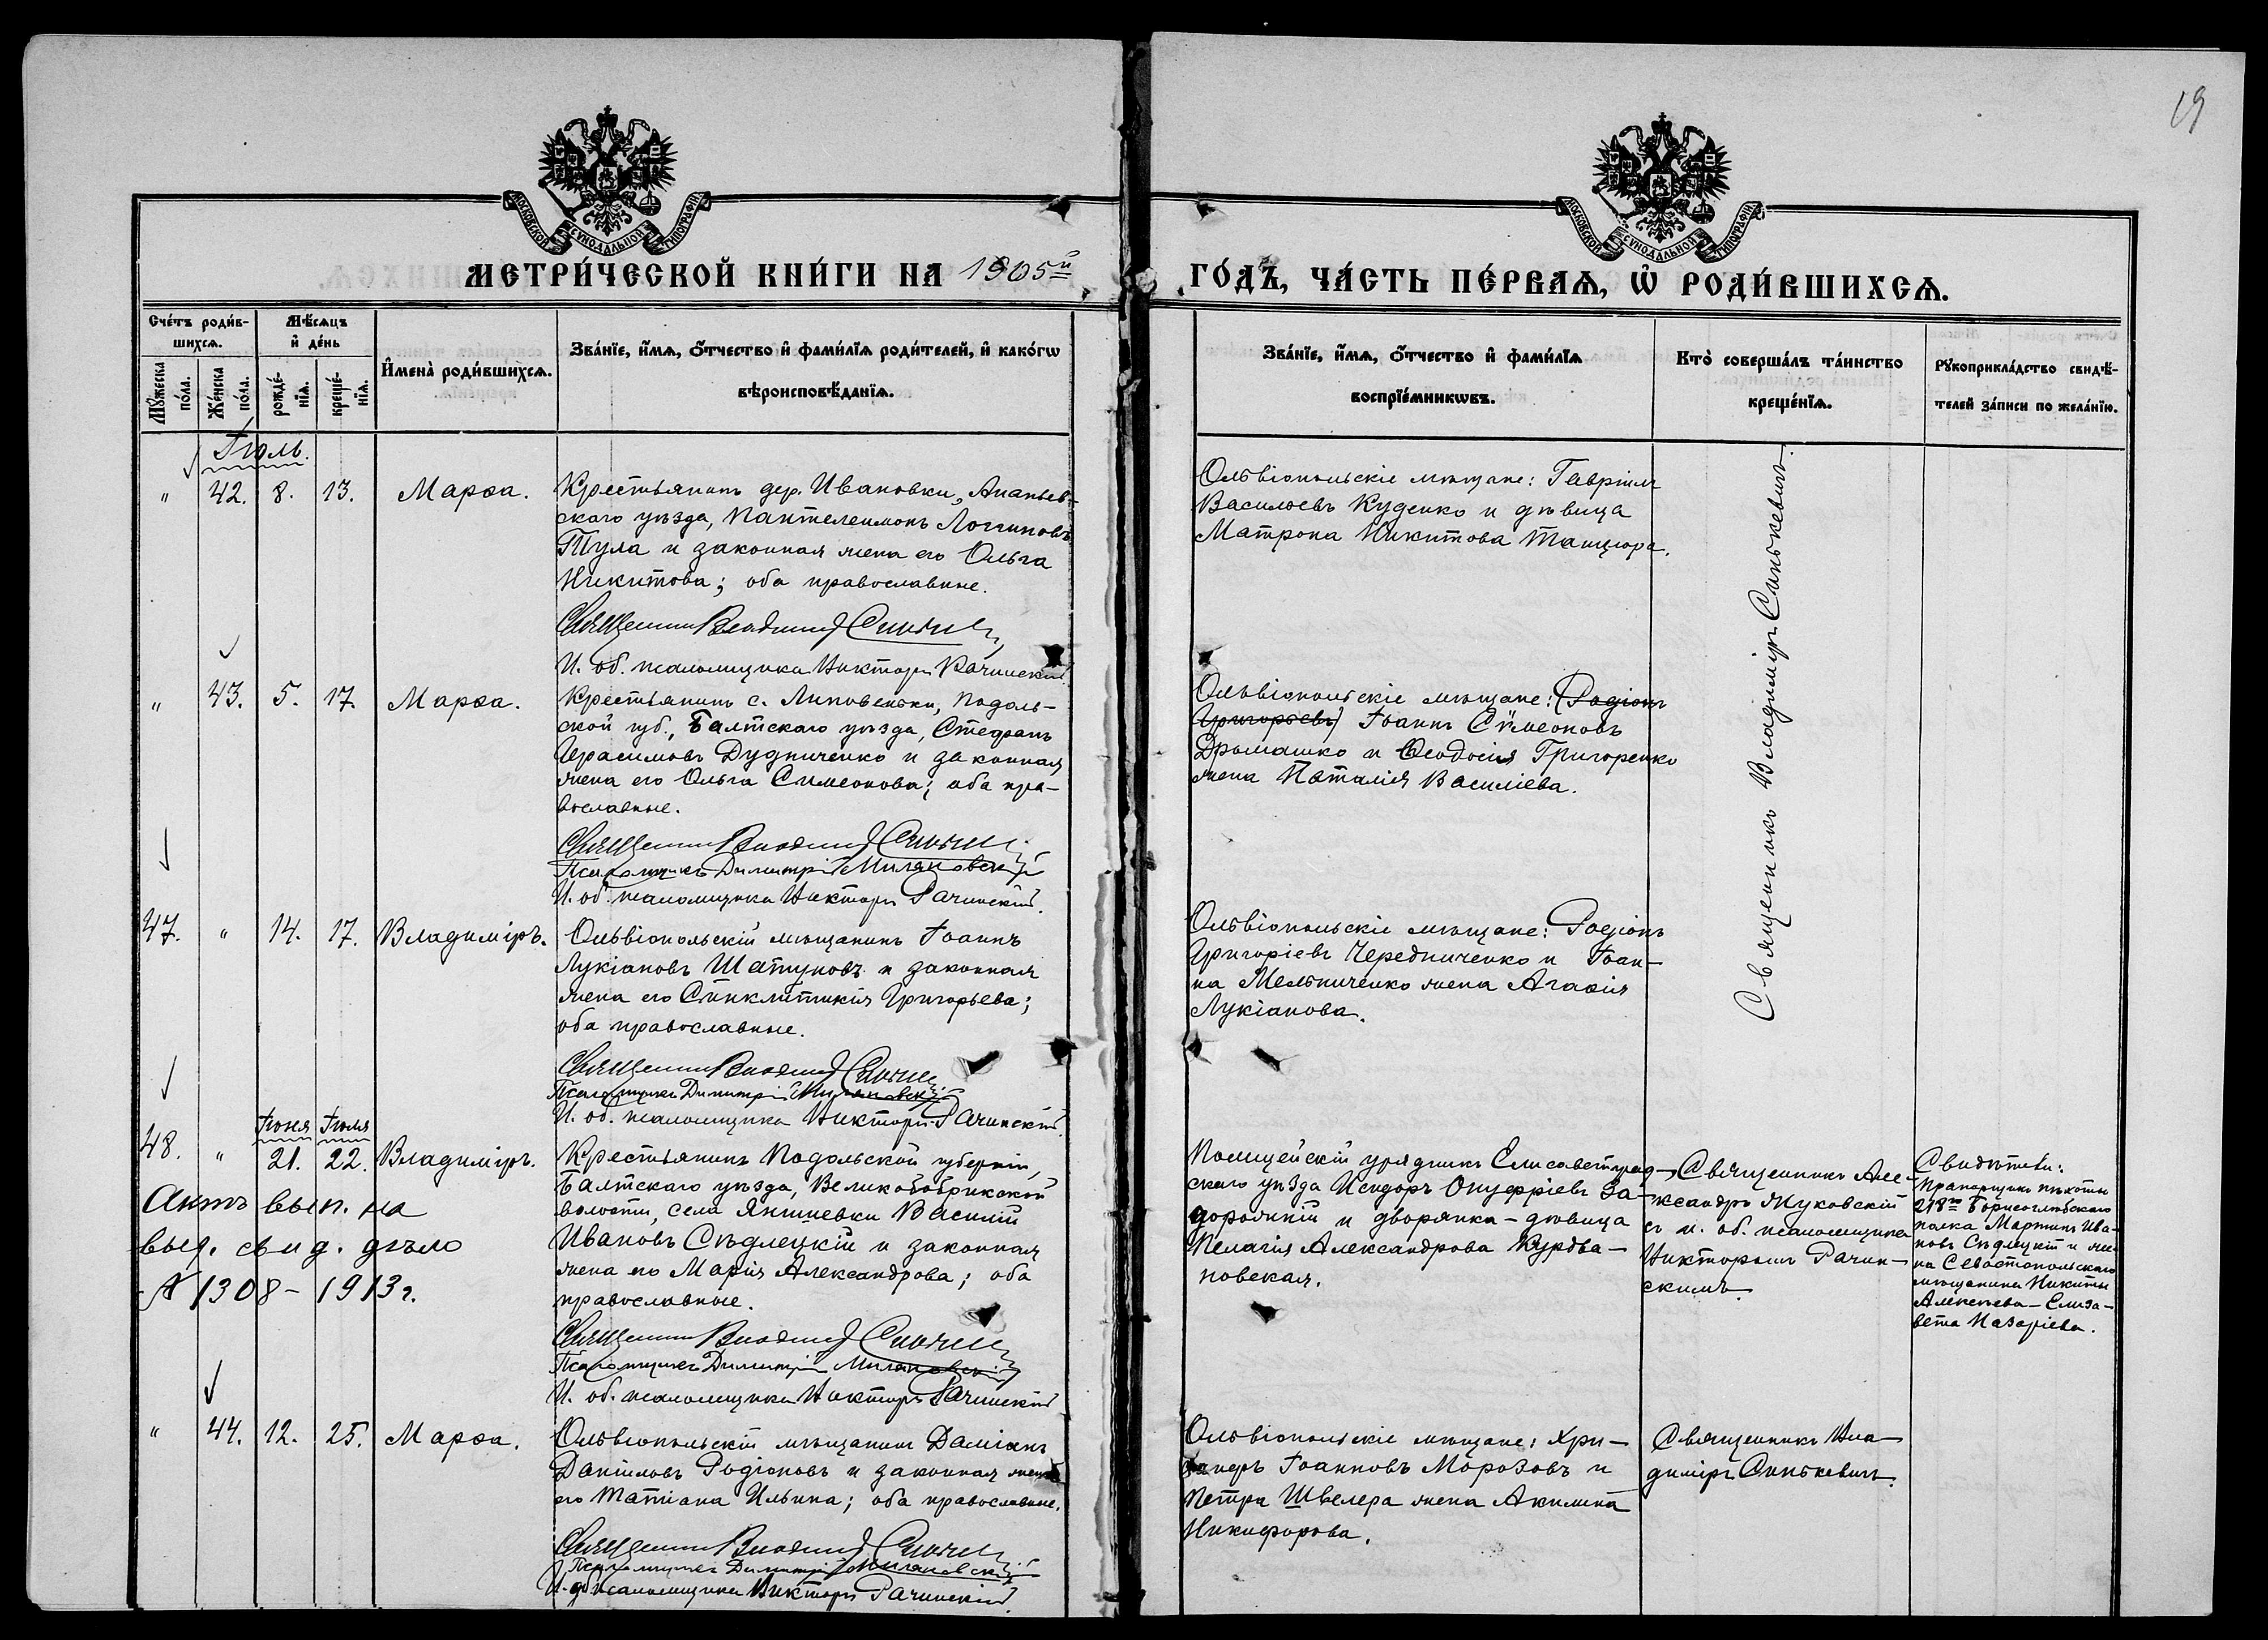 19
МОСКОВСКОЙ СУНОДАЛЬНОЙ ТИПОГРАФІИ
МОСКОВСКОЙ СУНОДАЛЬНОЙ ТИПОГРАФІИ
МЕТРИ́ЧЕСКОЙ КНИ́ГИ НА 1905й ГО́ДЪ, ЧА́СТЬ ПЕ́РВАѦ, Ѡ҆ РОДИ́ВШИХСѦ.
Сче́тъ роди́в-
шихсѧ.
Мꙋ́жеска
по́ла.
Же́нска
по́ла.
Мѣ́сѧцъ
и҆ де́нь
рожде́-
нїѧ.
креще́-
нїѧ.
И҆мена̀ роди́вшихсѧ.
Зва́нїе, и҆́мѧ, ѻ҆́тчество и҆ фами́лїѧ роди́телей, и҆ како́гѡ
вѣроисповѣ́данїѧ.
Зва́нїе, и҆́мѧ, ѻ҆́тчество и҆ фами́лїѧ
воспрїе́мникѡвъ.
Кто̀ соверша́лъ та́инство
креще́нїѧ.
Рꙋкоприкла́дство свидѣ́-
телей за́писи по жела́нїю.
Іюль.
" 42. 8. 13. Марѳа.
Крестьянинъ дер. Ивановки, Ананьев-
скаго уѣзда, Пантелеимонъ Логгиновъ
Тула и законная жена его Ольга
Никитова; оба православные.
Священникъ Владиміръ Синькевичъ
И. об. псаломщика Викторъ Рачинскій.
Ольвіопольскіе мѣщане: Гавріилъ
Василіевъ Куценко и дѣвица
Матрона Никитова Танцюра.
Священникъ Владиміръ Синькевичъ.
" 43. 5. 17. Марѳа.
Крестьянинъ с. Липовеньки, Подоль-
ской губ., Балтскаго уѣзда, Стефанъ
Герасимовъ Дудниченко и законная
жена его Ольга Симеонова; оба пра-
вославные.
Священникъ Владиміръ Синькевичъ
Псаломщикъ Димитрій Миляновскій
И. об. псаломщика Викторъ Рачинскій.
Ольвіопольскіе мѣщане: (Родіонъ
Григорьевъ) Іоаннъ Сѵмеоновъ
Дромашко и Ѳеодосія Григоренко
жена Наталія Василіева.
47. " 14. 17. Владиміръ.
Ольвіопольскій мѣщанинъ Іоаннъ
Лукіановъ Шатуновъ и законная
жена его Сѵнклитикія Григорьева;
оба православные.
Священникъ Владиміръ Синькевичъ
Псаломщикъ Димитрій Миляновскій
И. об. псаломщика Викторъ Рачинскій.
Ольвіопольскіе мѣщане: Родіонъ
Григоріевъ Чередниченко и Іоан-
на Мельниченко жена Агаѳія
Лукіанова.
Іюня Іюля
48. " 21. 22. Владиміръ.
Актъ вып. на
выд. свид. дѣло
№ 1308 - 1913 г.
Крестьянинъ Подольской губерніи,
Балтскаго уѣзда, Великобобрикской
волости, села Яншиевки Василій
Ивановъ Сѣдлецкій и законная
жена его Марія Александрова; оба
православные.
Священникъ Владиміръ Синькевичъ
Псаломщикъ Димитрій Миляновскій
И. об. псаломщика Викторъ Рачинскій
Полицейскій урядникъ Елисаветград-
скаго уѣзда Исидоръ Онуфріевъ За-
дорожній и дворянка - дѣвица
Пелагія Александрова Курдва-
новская.
Священникъ Але-
ксандръ Жуковскій
съ и. об. псаломщика
Викторомъ Рачин-
скимъ.
Свидѣтели:
Прапорщикъ пѣхоты
218го Борисоглѣбскаго
полка Мартинъ Ива-
новъ Сѣдлецкій и же-
на Севастопольскаго
мѣщанина Никиты
Алексѣева - Елиза-
вета Назаріева.
" 44. 12. 25. Марѳа.
Ольвіопольскій мѣщанинъ Даміанъ
Даниловъ Родіоновъ и законная жена
его Татіана Ильина; оба православные.
Священникъ Владиміръ Синькевичъ
Псаломщикъ Димитрій Миляновскій
И. об. псаломщика Викторъ Рачинскій.
Ольвіопольскіе мѣщане: Хри-
Іоанновъ Морозовъ и
Петра Швелера жена Акилина
Никифорова.
Священникъ Вла-
диміръ Синькевичъ.